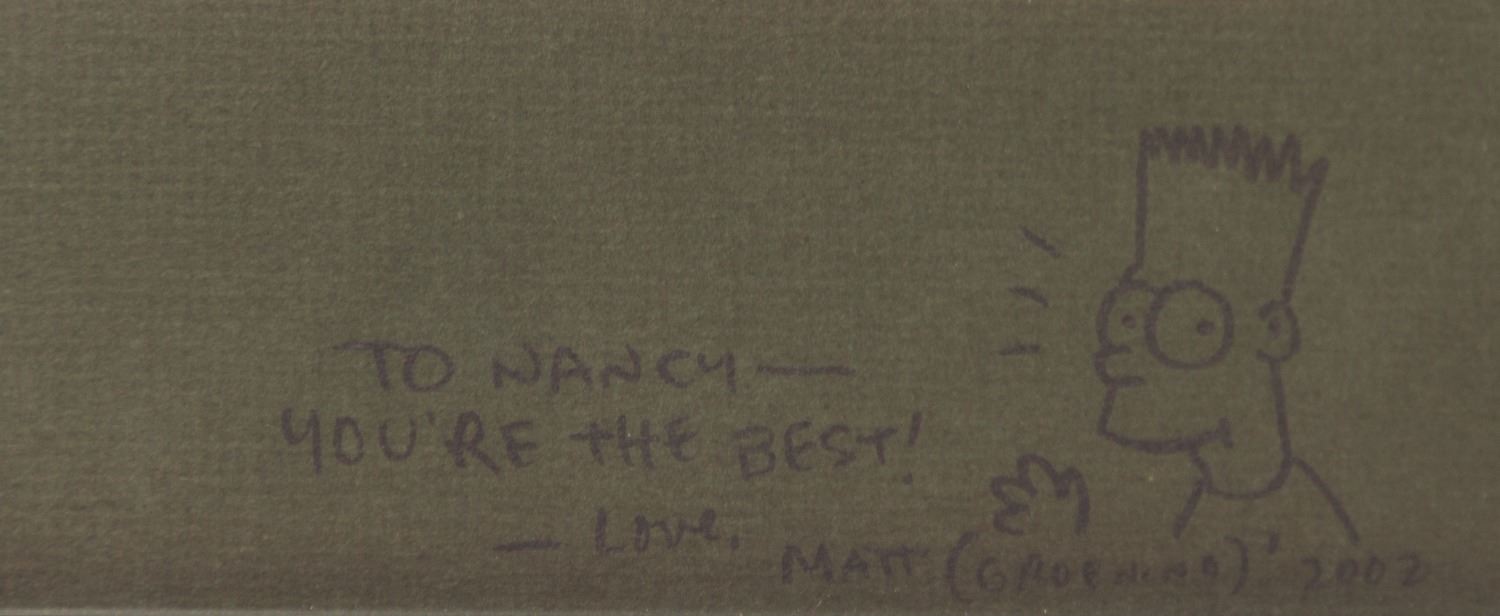 TO NANCY —
YOU'RE THE BEST!
— LOVE,
MATT (GROENING) ' 2002